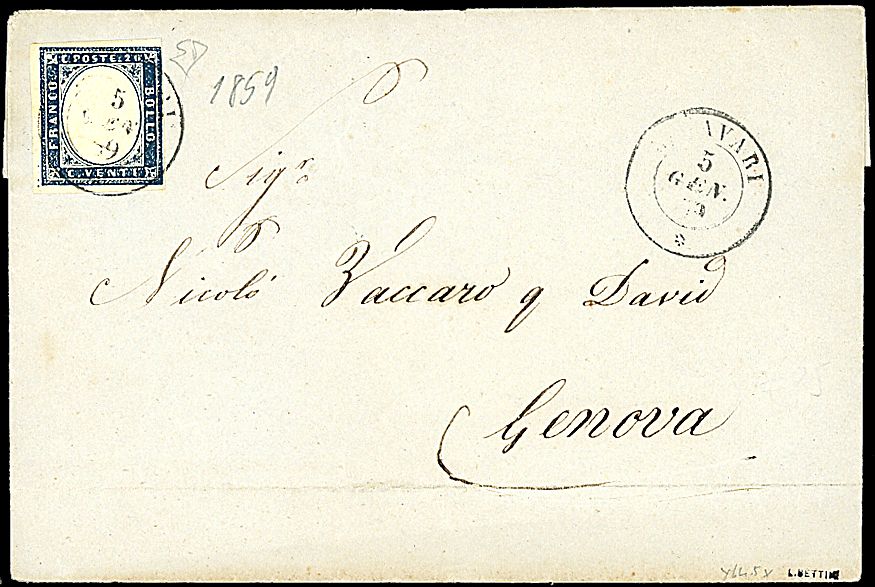 C POSTE. 20
FRANCO
BOLLO
C VENTI
5
GEN
59
1859
AVARI
5
GEN.
Sigr.
Nicoló Zaccaro q David
Genova
L. BETTINI